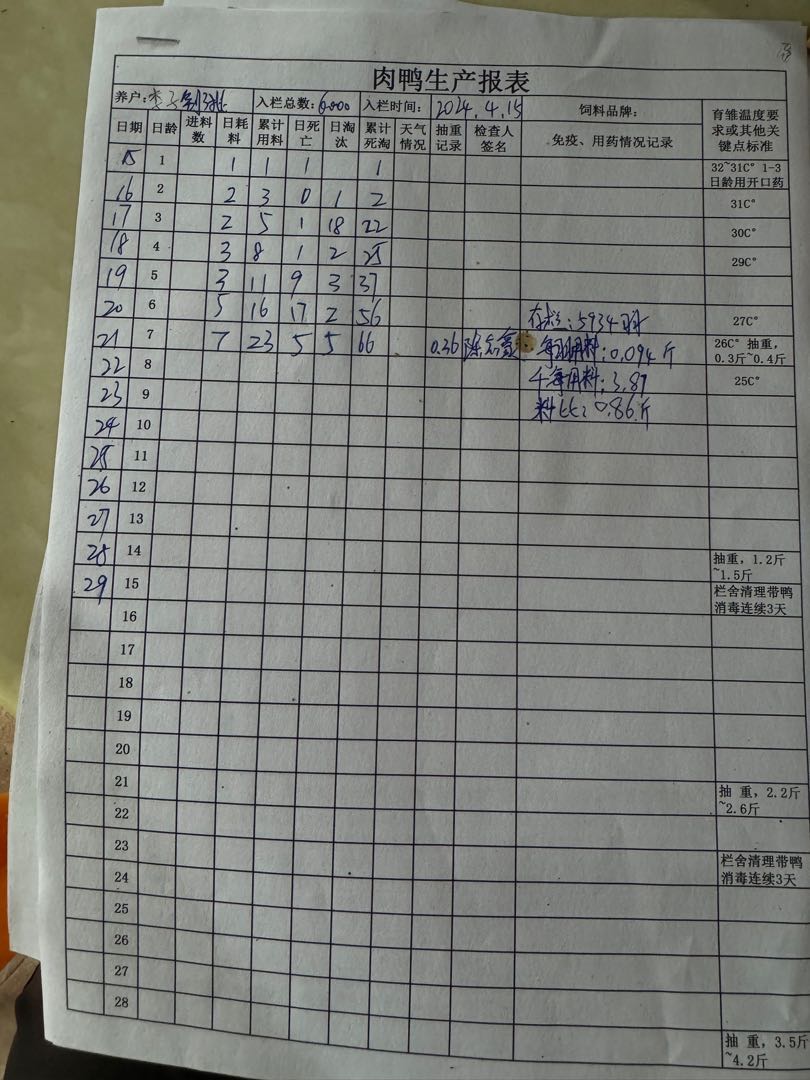 肉鸭生产报表
养户: 李 入栏总数: 6000 入栏时间: 2024.4.15 饲料品牌: 育雏温度要求或其他关键点标准
日期 日龄 进料数 日耗料 累计用料 日死亡 日淘汰 累计死淘 天气情况 抽重记录 检查人签名 免疫、用药情况记录
15 1 1 1 1 1 32~31C° 1-3日龄用开口药
16 2 2 3 0 1 2 31C°
17 3 2 5 1 18 22 30C°
18 4 3 8 1 2 25 29C°
19 5 3 11 9 3 37
20 6 5 16 17 2 56 存栏:5934羽 27C°
21 7 7 23 5 5 66 0.36 陈志鑫 每羽用料:0.094斤 26C° 抽重，0.3斤~0.4斤
22 8 千每用料:3.87 25C°
23 9 料比:0.86斤
24 10
25 11
26 12
27 13
28 14 抽重，1.2斤~1.5斤
29 15 栏舍清理带鸭消毒连续3天
16
17
18
19
20
21 抽 重，2.2斤~2.6斤
22
23 栏舍清理带鸭消毒连续3天
24
25
26
27
28 抽 重，3.5斤~4.2斤